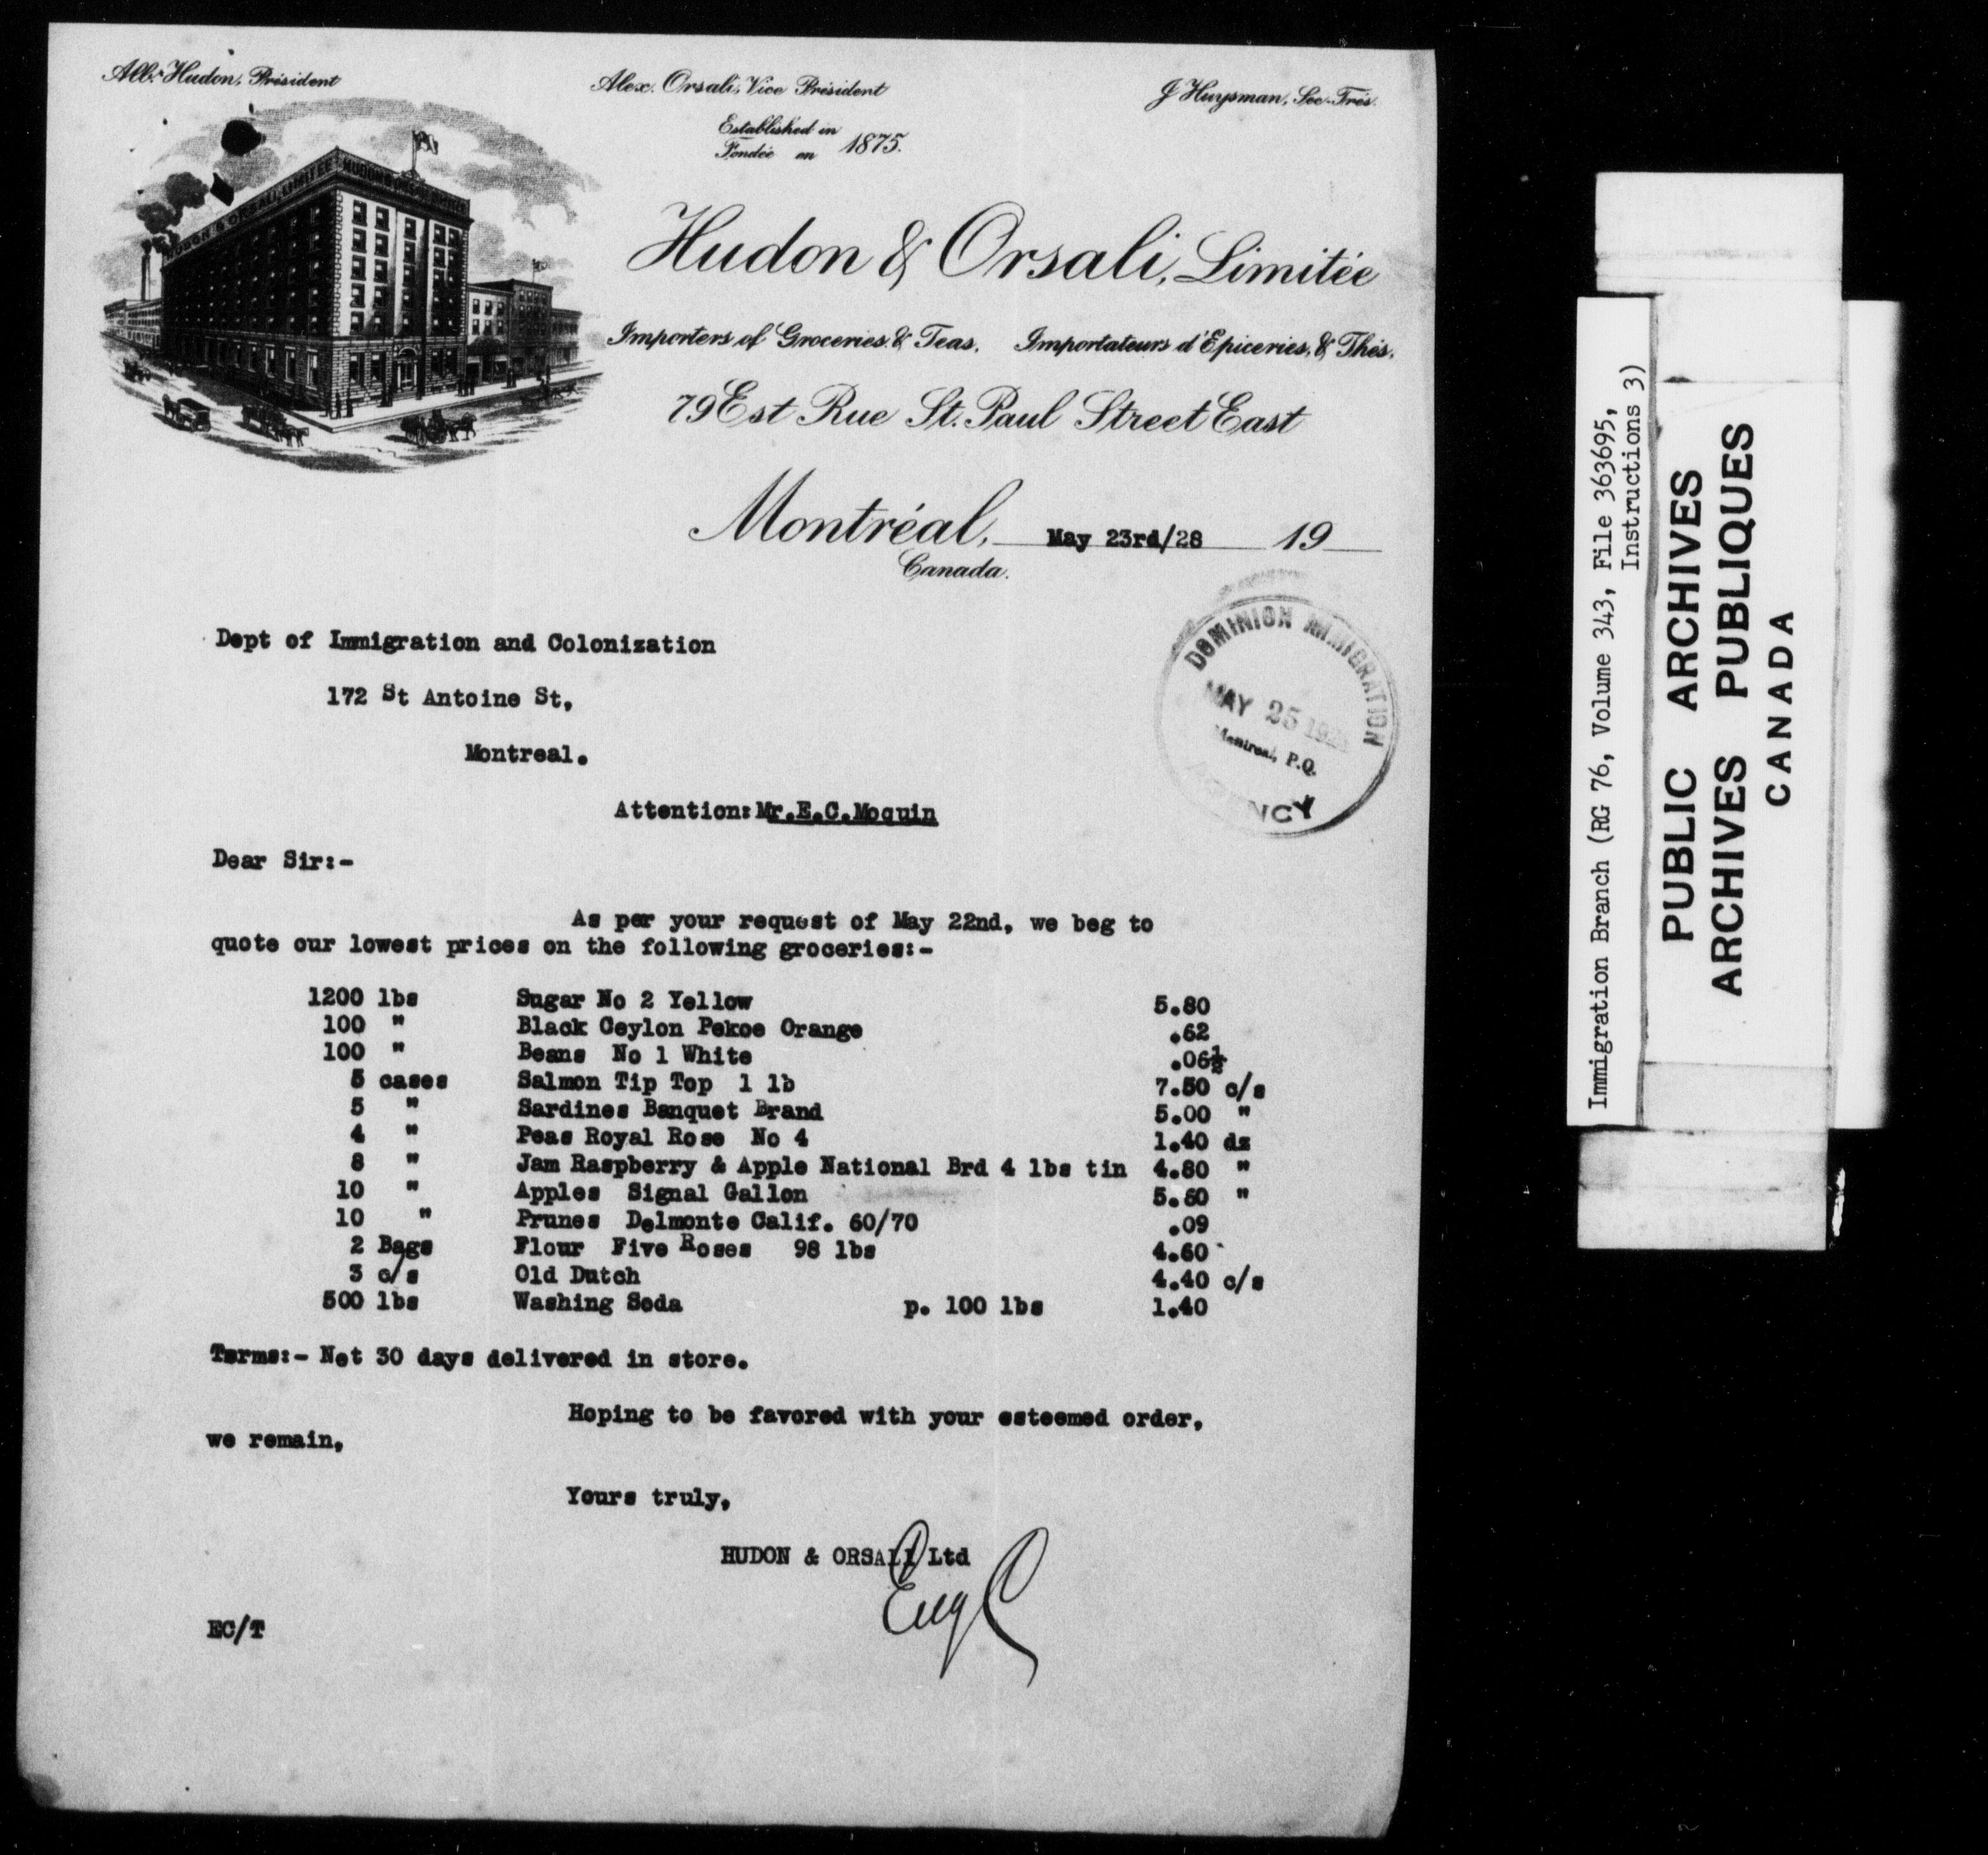 Alb. Hudon, Président
Alex. Orsali, Vice Président
J Huysman, Sec. Trés.
Established in
Fondée en 1875.
HUDON & ORSALI, LIMITÉE
Hudon & Orsali, Limitée
Importers of Groceries & Teas. Importateurs d'Epiceries, & Thés.
79 Est Rue St. Paul Street East
Montréal, May 23rd/28 19
Canada.
DOMINION IMMIGRATION
MAY 25
Montreal, P.Q.
Dept of Immigration and Colonization
172 St Antoine St,
Montreal.
Attention: Mr.E.C.Moquin
Dear Sir:-
As per your request of May 22nd, we beg to
quote our lowest prices on the following groceries:-
1200 lbs Sugar No 2 Yellow 5.80
100 " Black Ceylon Pekoe Orange .62
100 " Beans No 1 White .06½
5 cases Salmon Tip Top 1 lb 7.50 c/s
5 " Sardines Banquet Brand 5.00 "
4 " Peas Royal Rose No 4 1.40 dz
8 " Jam Raspberry & Apple National Brd 4 lbs tin 4.80 "
10 " Apples Signal Gallon 5.60 "
10 " Prunes Delmonte Calif. 60/70 .09
2 Bags Flour Five Roses 98 lbs 4.60
3 c/s Old Dutch 4.40 c/s
500 lbs Washing Soda p. 100 lbs 1.40
Terms:- Net 30 days delivered in store.
Hoping to be favored with your esteemed order,
we remain,
Yours truly,
HUDON & ORSALI Ltd
EC/T
Immigration Branch (RG 76, Volume 343, File 363695,
Instructions 3)
PUBLIC ARCHIVES
ARCHIVES PUBLIQUES
CANADA